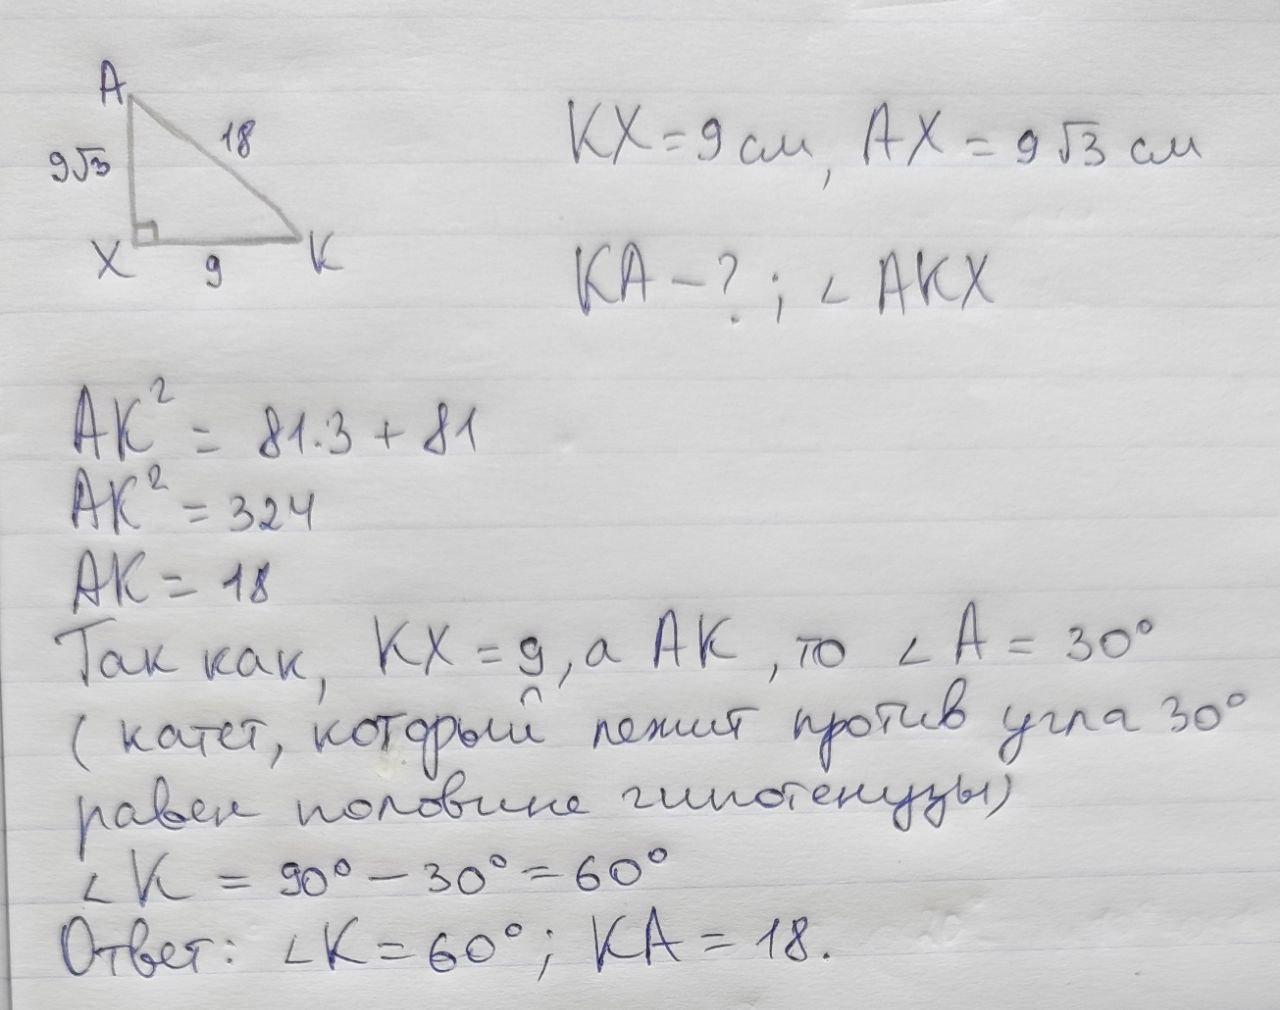 A
18
9√3
X
9
K
KX = 9 см, AX = 9√3 см
KA – ? ; ∠ AKX
AK² = 81·3 + 81
AK² = 324
AK = 18
Так как, KX = 9, а AK, то ∠A = 30°
(катет, который лежит против угла 30°
равен половине гипотенузы)
∠K = 90° – 30° = 60°
Ответ: ∠K = 60°; KA = 18.